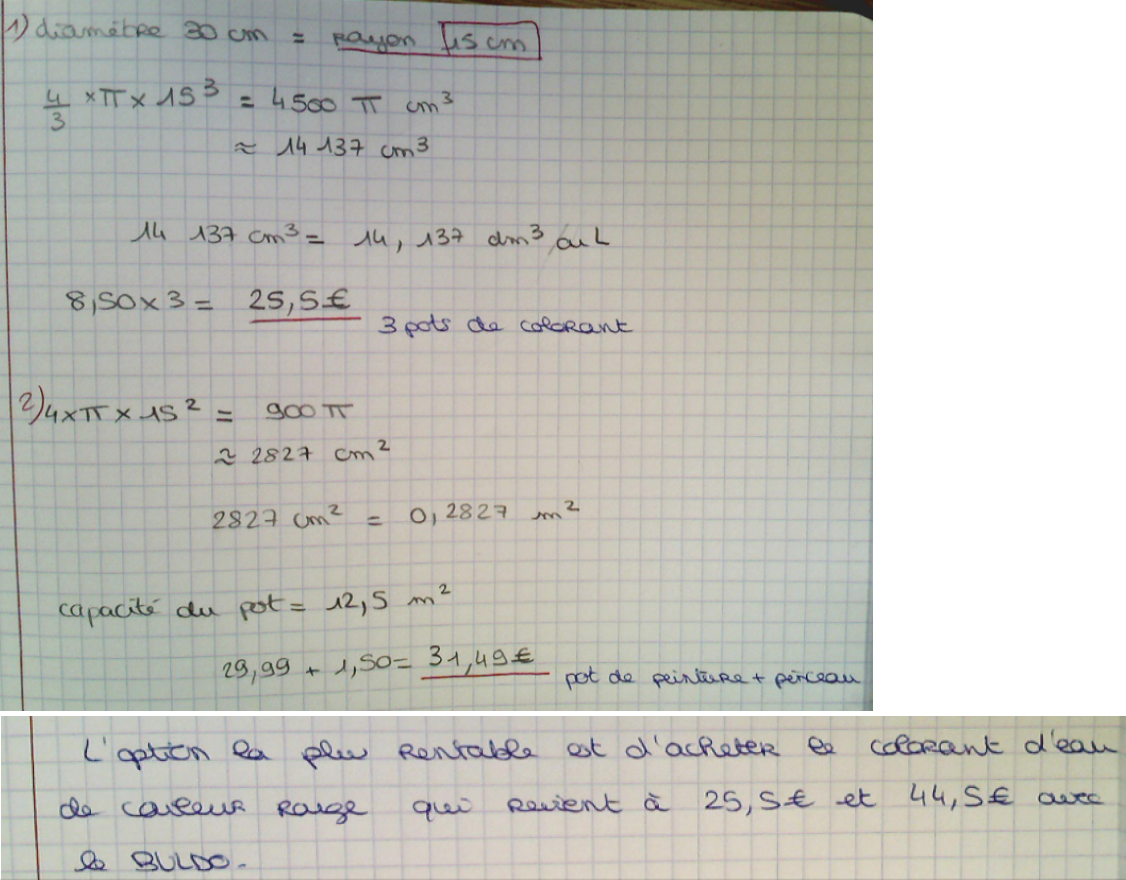 1) diamètre 30 cm = rayon 15 cm
4/3 × π × 15³ = 4500 π cm³
≈ 14 137 cm³
14 137 cm³ = 14, 137 dm³ ou L
8,50 × 3 = 25,5 €
3 pots de colorant
2) 4 × π × 15² = 900 π
≈ 2827 cm²
2827 cm² = 0,2827 m²
capacité du pot = 12,5 m²
29,99 + 1,50 = 31,49 €
pot de peinture + pinceau
L'option la plus rentable est d'acheter le colorant d'eau
de couleur rouge qui revient à 25,5 € et 44,5 € avec
le BULDO.